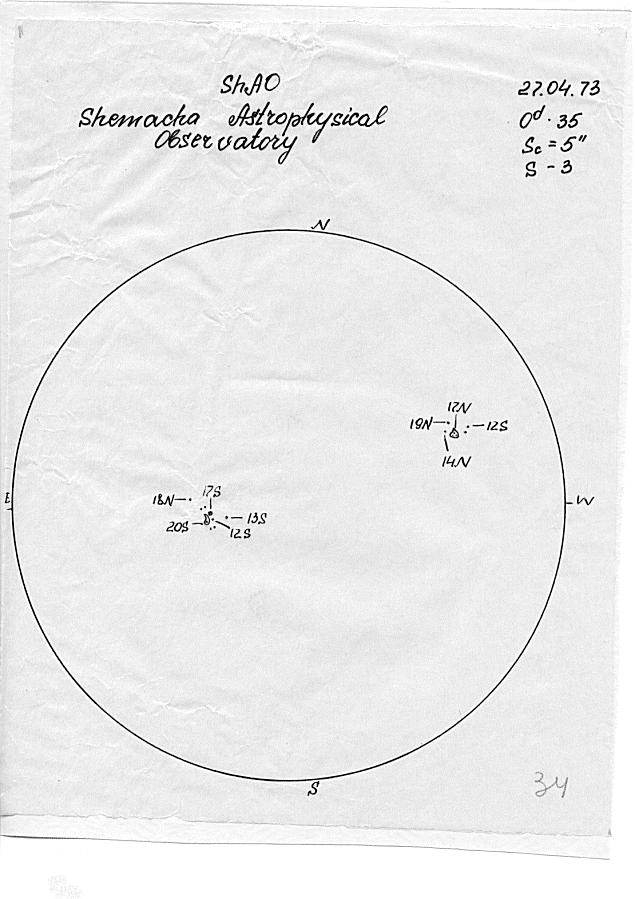 ShAO
Shemacha Astrophysical
Observatory
27.04.73
0d.35
Sc = 5"
S - 3
N
17N
19N
12S
14N
E
W
18N
17S
20S
13S
12S
S
34